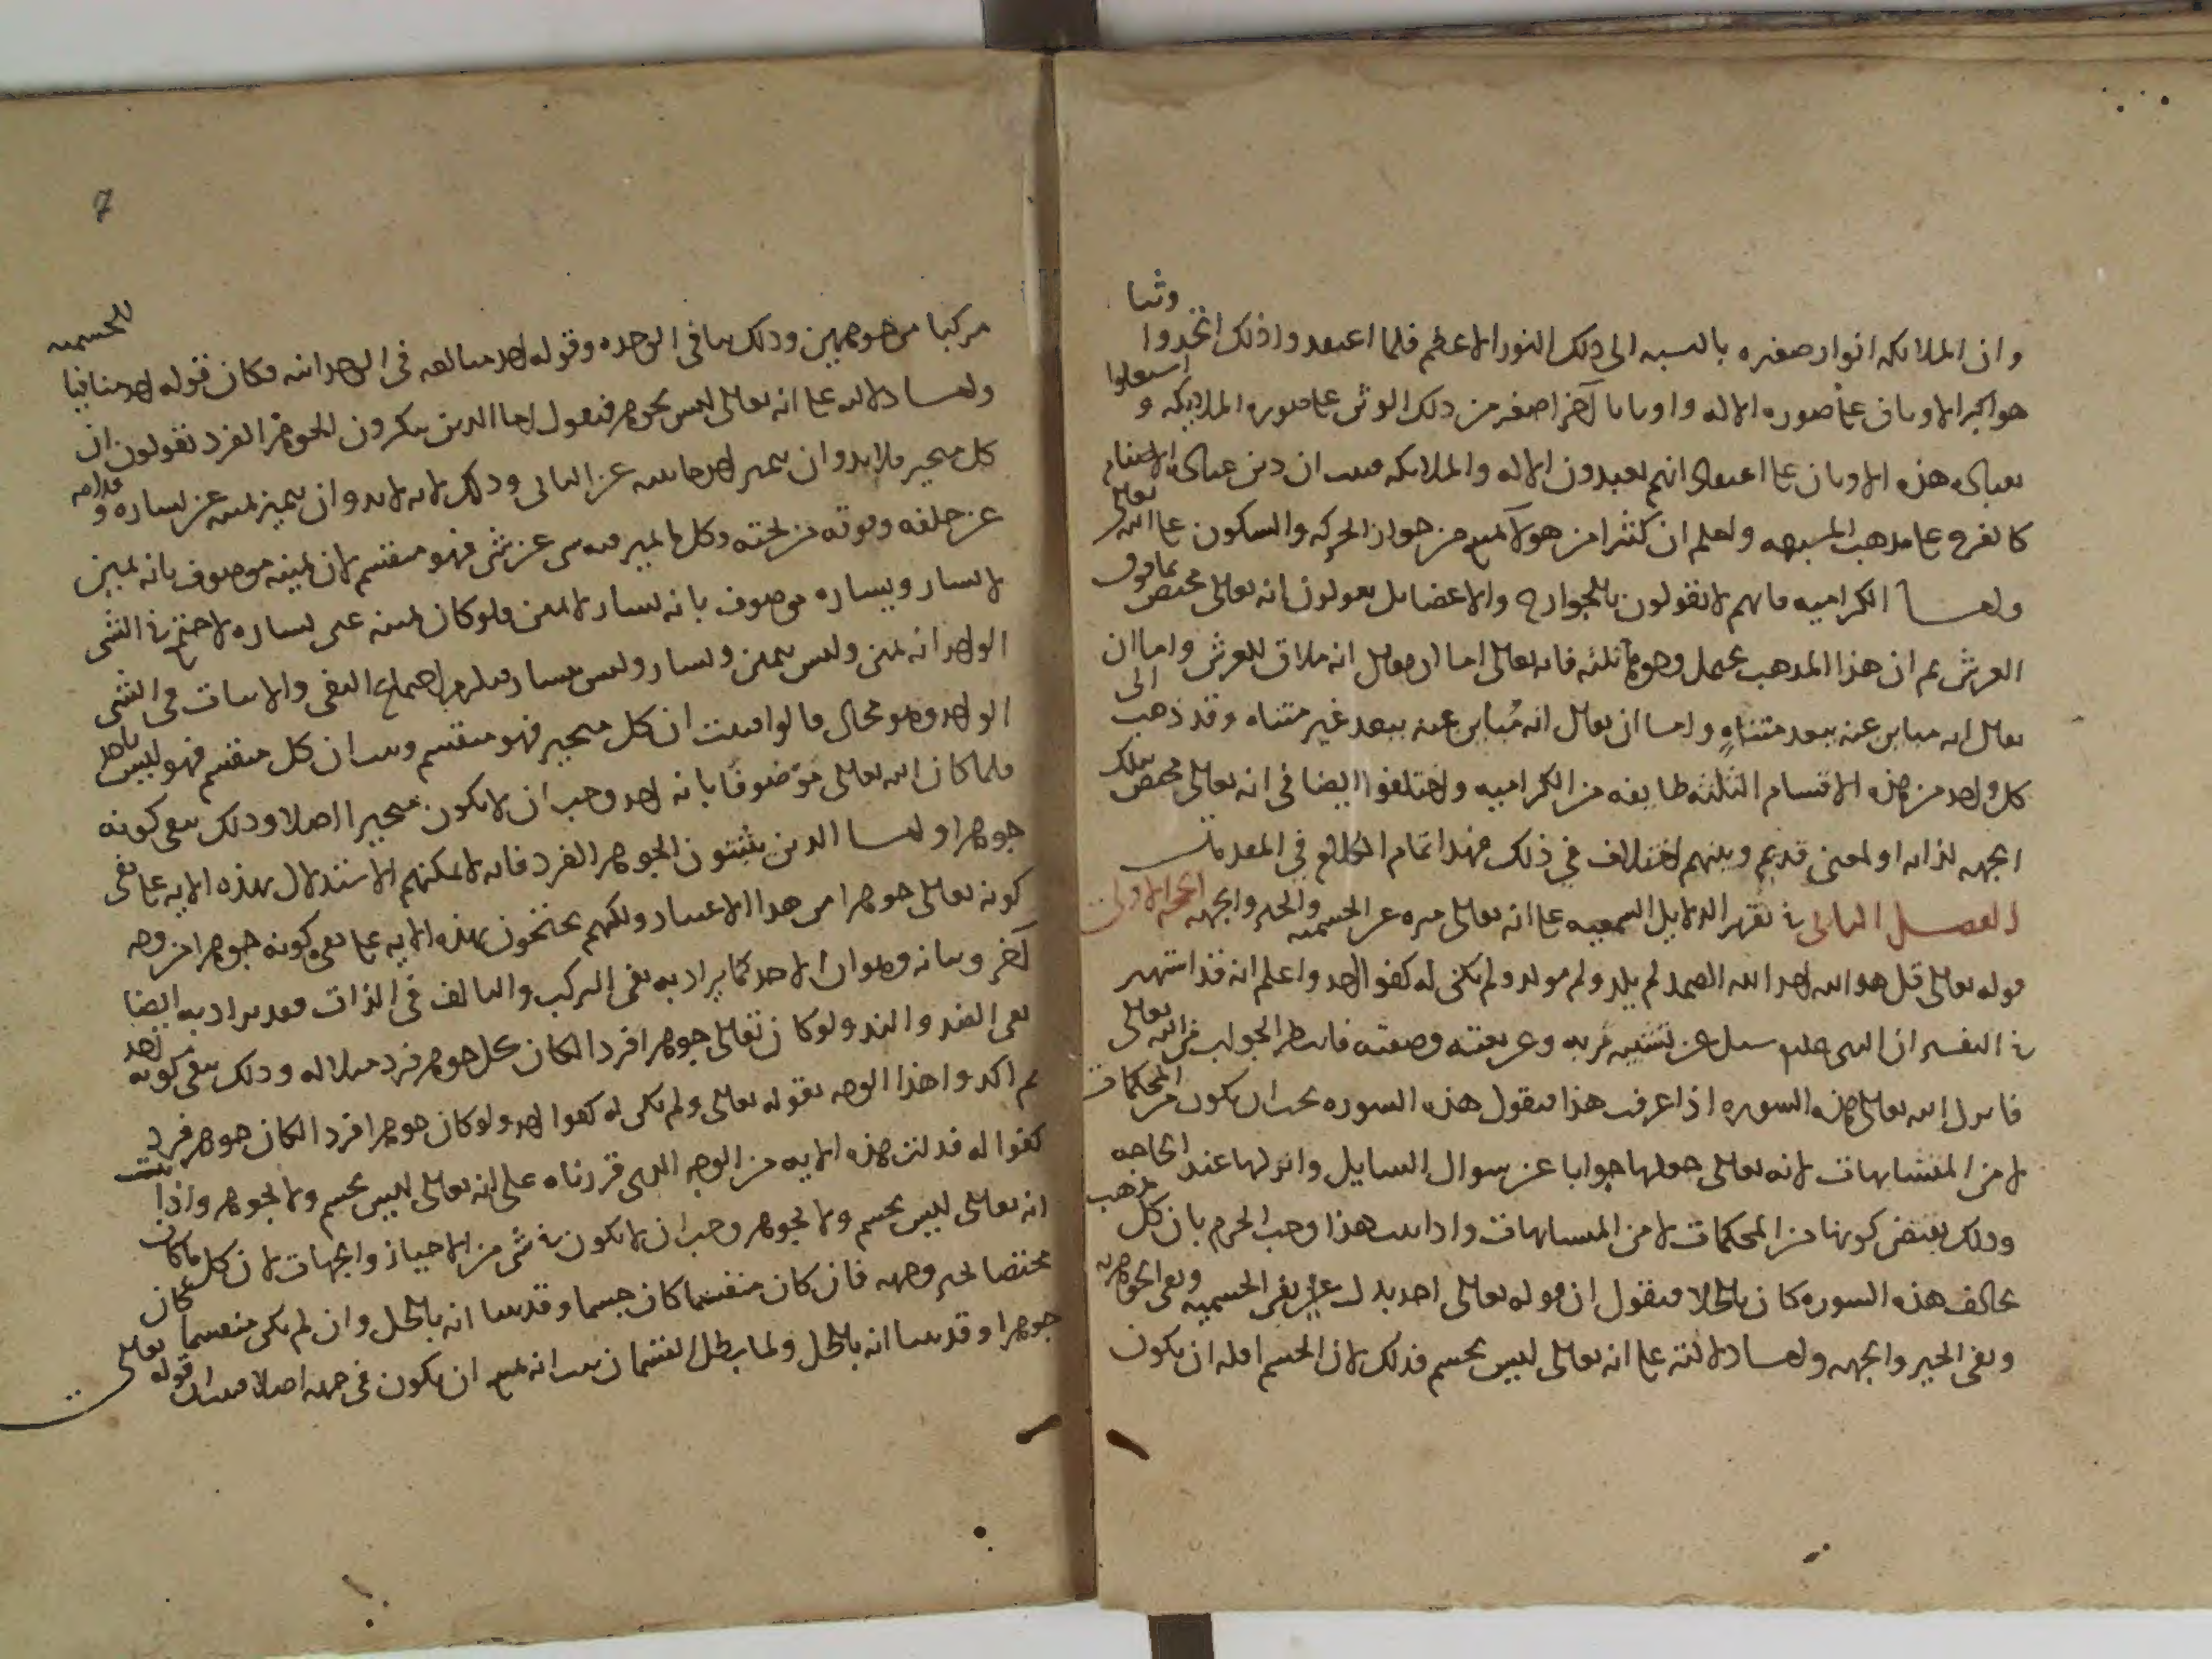 وان الملائكه انوار صغيره بالنسبه الى ذلك النور الاعظم فلما اعتقدوا ذلك اتخذوا وثنا
هو اكبر الاوثان على صوره الاله واوثانا اخر اصغر من ذلك الوثن على صوره الملايكه واشتغلوا
بعباده هذه الاوثان على اعتقاد انهم يعبدون الاله والملائكه فثبت ان دين عباده الاصنام
كالفرع على مذهب المشبهه واعلم ان كثيرا من هولآ يمنع من جواز الحركه والسكون على الله تعالى
واما الكراميه فانهم لا يقولون بالجوارح والاعضا بل يقولون انه تعالى مختص بما فوق
العرش ثم ان هذا المذهب يحتمل وجوها ثلثه فانه تعالى اما ان يقال انه ملاق للعرش واما ان
يقال انه مباين عنه ببعد متناهٍ واما ان يقال انه مُباين عنه ببعد غير متناه وقد ذهب الى
كل واحد من هذه الاقسام الثلثه طايفه من الكراميه واختلفوا ايضا في انه تعالى مختص بتلك
الجهه لذاته او لمعنى قديم وبينهم اختلاف في ذلك فهذا تمام الكلام في المقدمات
الفصل الثاني في تقرير الدلايل السمعيه على انه تعالى منزه عن الجسميه والحيز والجهه الحجه الاولى
قوله تعالى قل هو الله احد الله الصمد لم يلد ولم يولد ولم يكن له كفوا احد واعلم انه قد اشتهر
في التفسير ان النبي عليه سئل عن ربه وعن نعته وصفته فانتظر الجواب من الله تعالى
فانزل الله تعالى هذه السوره اذا عرفت هذا فنقول هذه السوره يجب ان يكون من المحكمات
لا من المتشابهات لانه تعالى جعلها جوابا عن سوال السايل وانزلها عند الحاجه
وذلك يقتضي كونها من المحكمات لا من المتشابهات واذا ثبت هذا وجب الجزم بان كل مذهب
يخالف هذه السوره كان باطلا فنقول ان قوله تعالى احد يدل على نفي الجسميه ونفي الجوهريه
ونفي الحيز والجهه واما دلالته على انه تعالى ليس بجسم فذلك لان الجسم اقله ان يكون
مركبا من جوهرين وذلك ينافي الوحده وقوله احد مبالغه في الوحدانيه فكان قوله احد منافيا للجسميه
واما دلالته على انه تعالى ليس بجوهر فنقول اما الذين ينكرون الجوهر الفرد يقولون ان
كل متحيز فلابد وان يتميز احد جانبيه عن الثاني وذلك لانه لابد وان يتميز يمينه عن يساره وقدامه
عن خلفه وفوقه من تحته وكل ما تميز فيه شي عن شي فهو منقسم لان يمينه موصوف بانه يمين
لا يسار ويساره موصوف بانه يسار لا يمين فلو كان يمينه عين يساره لاجتمع في الشي
الواحد انه يمين وليس بيمين ويسار وليس بيسار فيلزم اجتماع النفي والاثبات في الشي
الواحد وهو محال قالوا فثبت ان كل متحيز فهو منقسم وثبت ان كل منقسم فهو ليس باحد
فلما كان الله تعالى موصوفا بانه احد وجب ان لا يكون متحيزا اصلا وذلك ينفي كونه
جوهرا واما الذين يثبتون الجوهر الفرد فانه لا يمكنهم الاستدلال بهذه الايه على نفي
كونه تعالى جوهرا من هذا الاعتبار ولكنهم يحتجون بهذه الايه على نفي كونه جوهرا من وجه
آخر وبيانه وهو ان الاحد كما يراد به نفي التركيب والتالف في الذات فقد يراد به ايضا
نفي الضد والند ولو كان تعالى جوهرا فردا لكان كل جوهر فرد مثلا له وذلك ينفي كونه احد
ثم اكدوا هذا الوجه بقوله تعالى ولم يكن له كفوا احد ولو كان جوهرا فردا لكان كل جوهر فرد
كفوا له فدلت هذه الايه من الوجه الذي قررناه على انه تعالى ليس بجسم ولا بجوهر واذا ثبت
انه تعالى ليس بجسم ولا بجوهر وجب ان لا يكون في شي من الاحياز والجهات لان كل ما كان
مختصا بحيز وجهه فان كان منقسما كان جسما وقد بينا انه باطل وان لم يكن منقسما كان
جوهرا وقد بينا انه باطل ولما بطل القسمان ثبت انه يمتنع ان يكون في جهه اصلا فثبت ان قوله تعالى